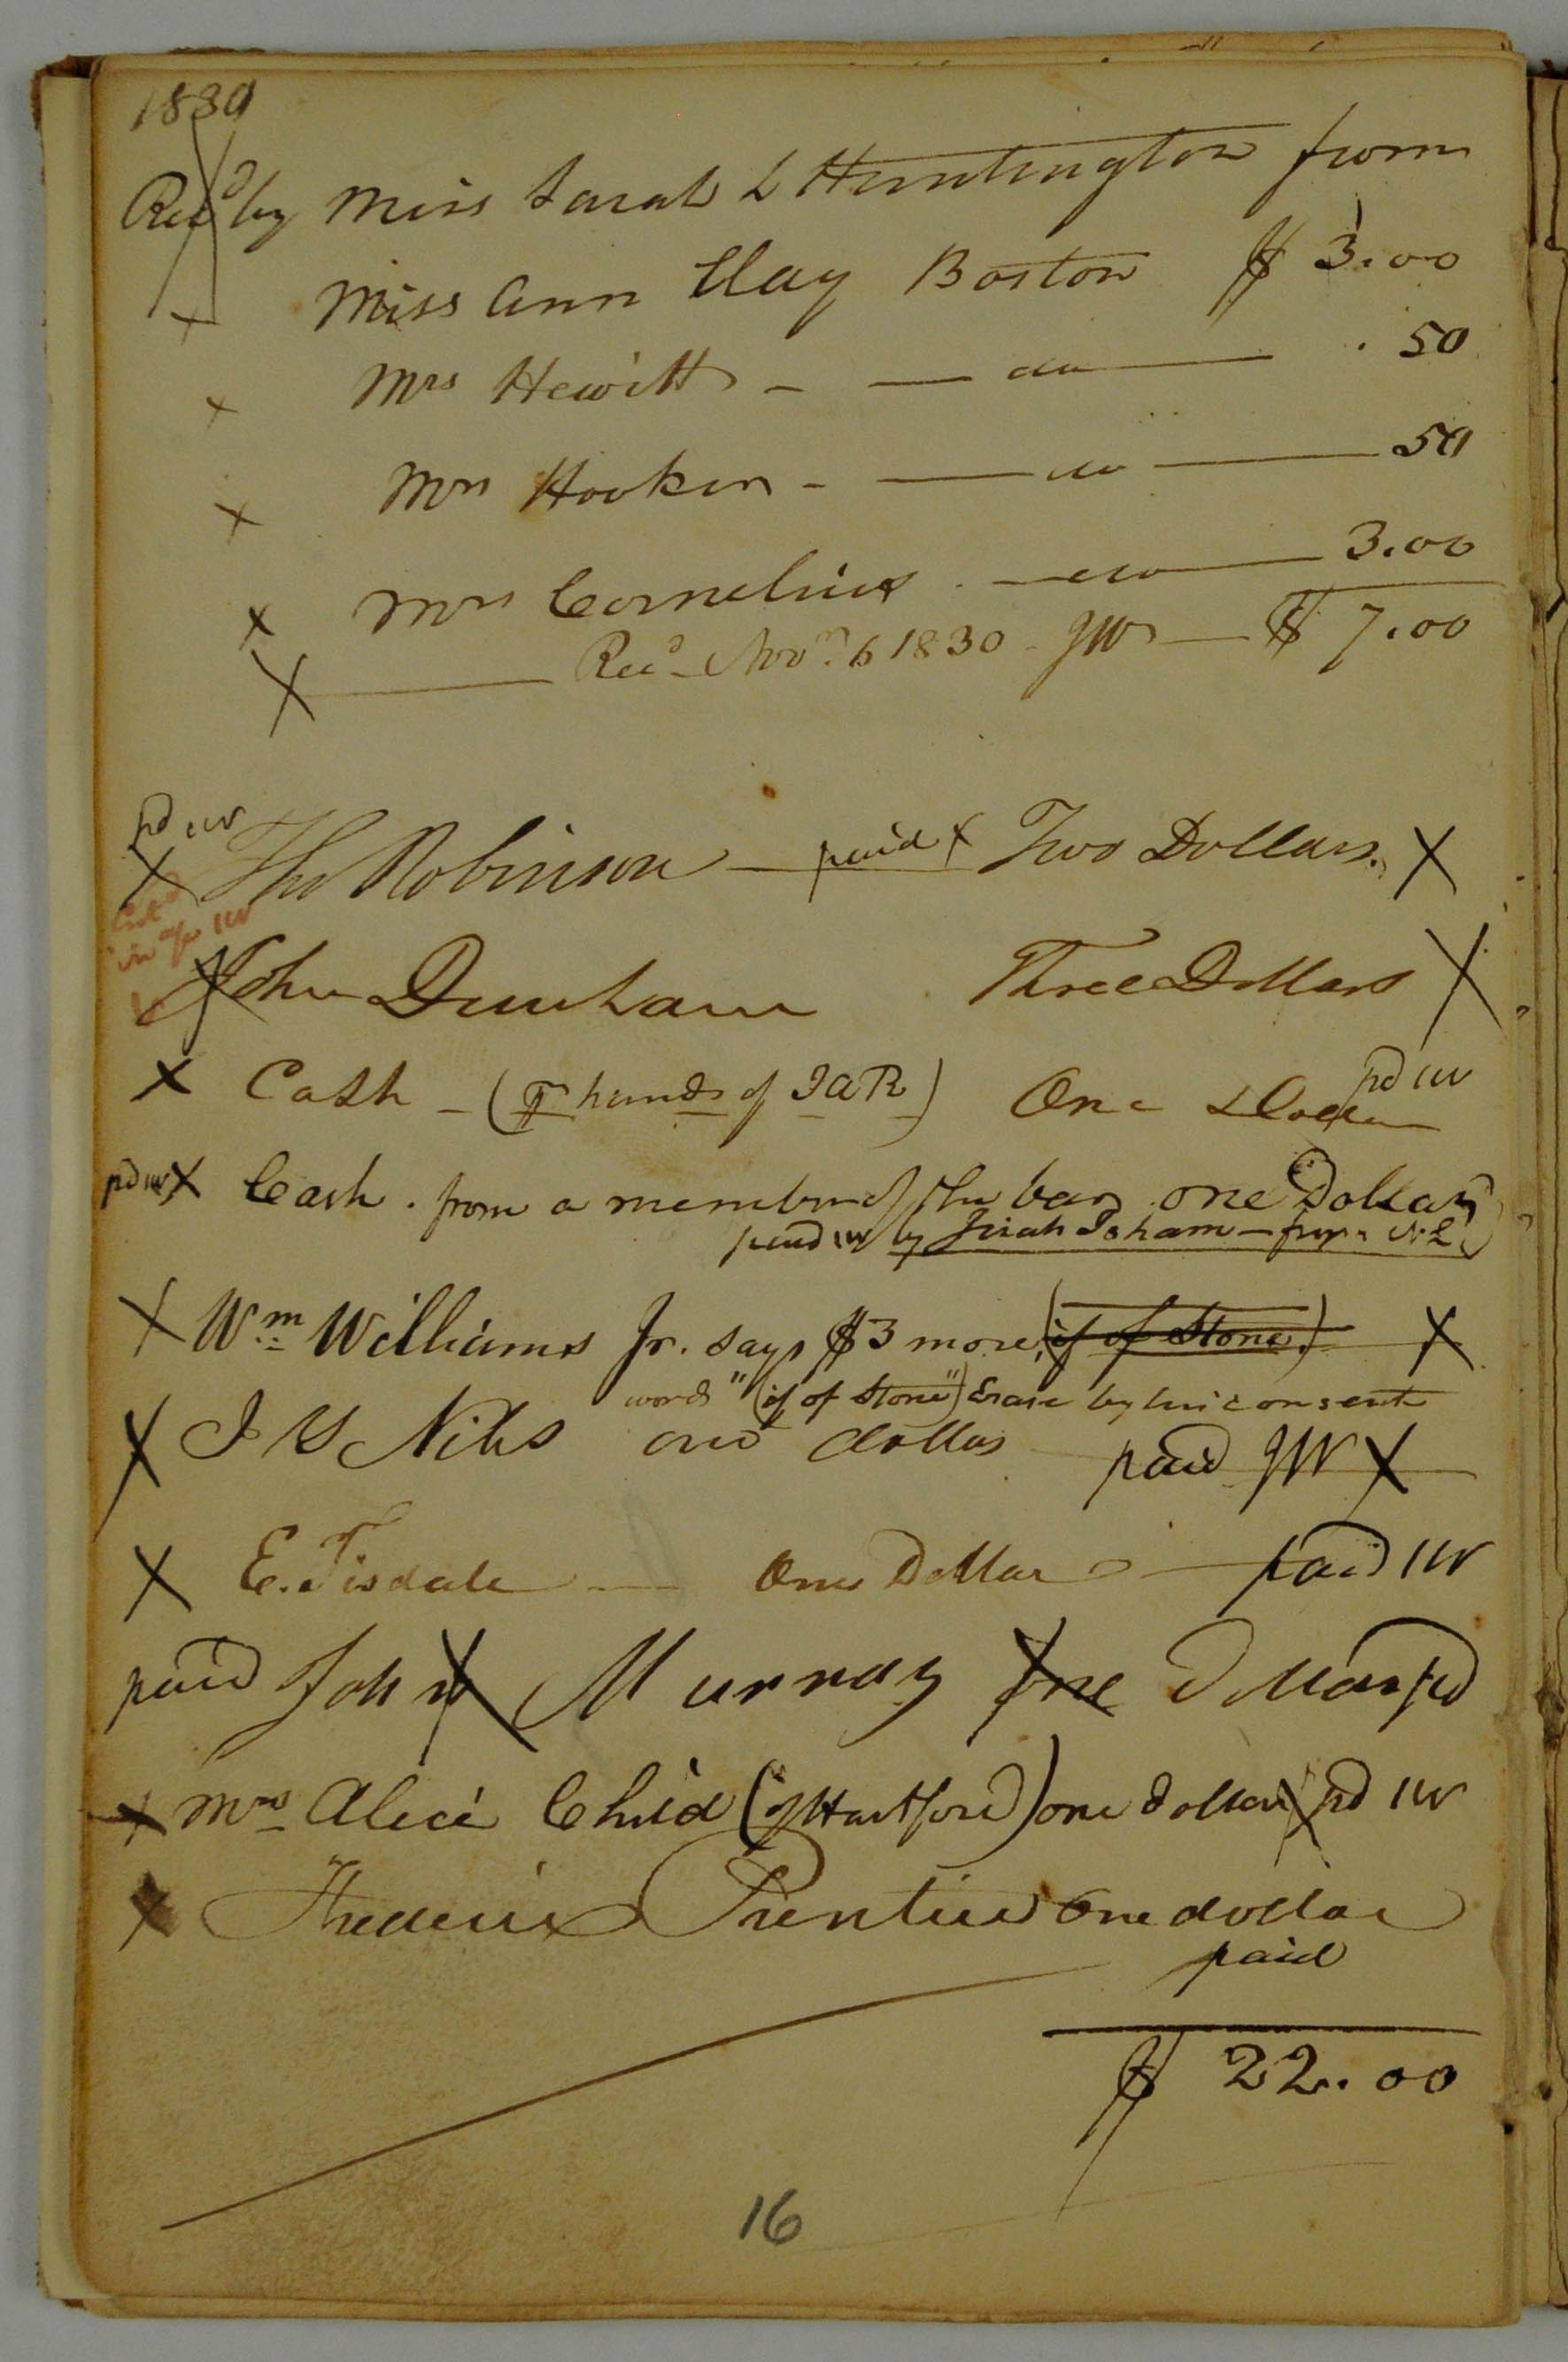 1830
Recd by Miss Sarah L Huntington from
X Miss Ann Clay Boston $ 3.00
X Mrs Hewitt - — do — .50
X Mrs Hooker - — do — 50
X Mrs Cornelius . — do — 3.00
X — Recd Nov. 6 1830 - JW — $ 7.00
pd JW
X Tho Robinson — paid X Two Dollars. X
in JW
X John Dunham Three Dollars X
pd JW
X Cash - (pr hands of JAR) One Dollar
pd JW X Cash . from a member of the bar one Dollar
paid JW by Jirah Isham — N.L.
X Wm Williams Jr. says $3 more, (if of Stone) X
words "(if of Stone)" Erase by his consent
X J Niles one dollar paid JW X
X E. Tisdale — One Dollar — paid JW
paid John X Murray One Dollar pd
X Mrs Alice Child (of Hartford) one dollar X pd JW
X Frederick Prentice One dollar
paid
$ 22.00
16